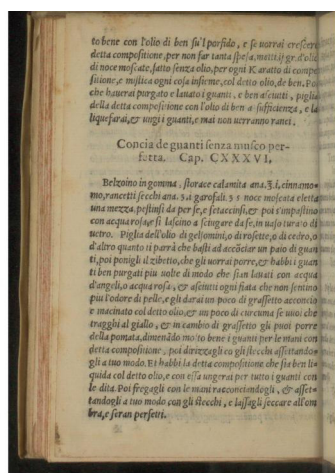 to bene con l'olio di ben su'l porfido, e se uorrai crescere
detta compositione, per non far tanta spesa, metti
di noce moscate, fatto senza olio, per ogni K aratto di compo
sitione, e mistica ogni cosa insieme, col detto olio, de ben. Po
che haurai purgato e lauato i guanti, e ben asciutti, piglia
della detta compositione con l'olio di ben a sufficienza, e la
liquefarai, & ungi i guanti, e mai non uerranno ranci.
Concia de guanti senza musco per-
fetta. Cap. CXXXVI,
Belzoino in gomma, storace calamita ana. ʒ. i, cinnamo-
mo, rancetti secchi ana. ʒ. i, garofali. ʒ 1 noce moscata eletta
una mezza, pestinsi da per se, e setaccinsi, & poi s'impastino
con acqua rosa, e si lascino a sciugare da se, in uaso turato di
uetro. Piglia dell'olio de gelsomini, o di rosette, o di cedro, o
d'altro quanto ti parrà che basti ad accōciar un paio di guan
ti, poi ponigli il zibetto, che gli uorrai porre, & habbi i guan
ti ben purgati piu uolte di modo che sian lauati con acqua
d'angeli, o acqua rosa, & asciutti ogni fiata che non sentino
piu l'odore di pelle, e gli darai un poco di grassetto acconcio
e macinato col detto olio, & un poco di curcuma se uuoi che
tragghi al giallo, & in cambio di grassetto gli puoi porre
della pomata, dimenādo molto bene i guanti per le mani con
detta compositione, poi dirizzagli co gli stecchi assettando-
gli a tuo modo. Et habbi la detta compositione che sia ben li-
quida col detto olio, e con essa ungerai per tutto i guanti con
le dita. Poi fregagli con le mani racconciandogli, & asset-
tandogli a tuo modo con gli stecchi, e lassagli seccare all'om
bra, e seran perfetti.